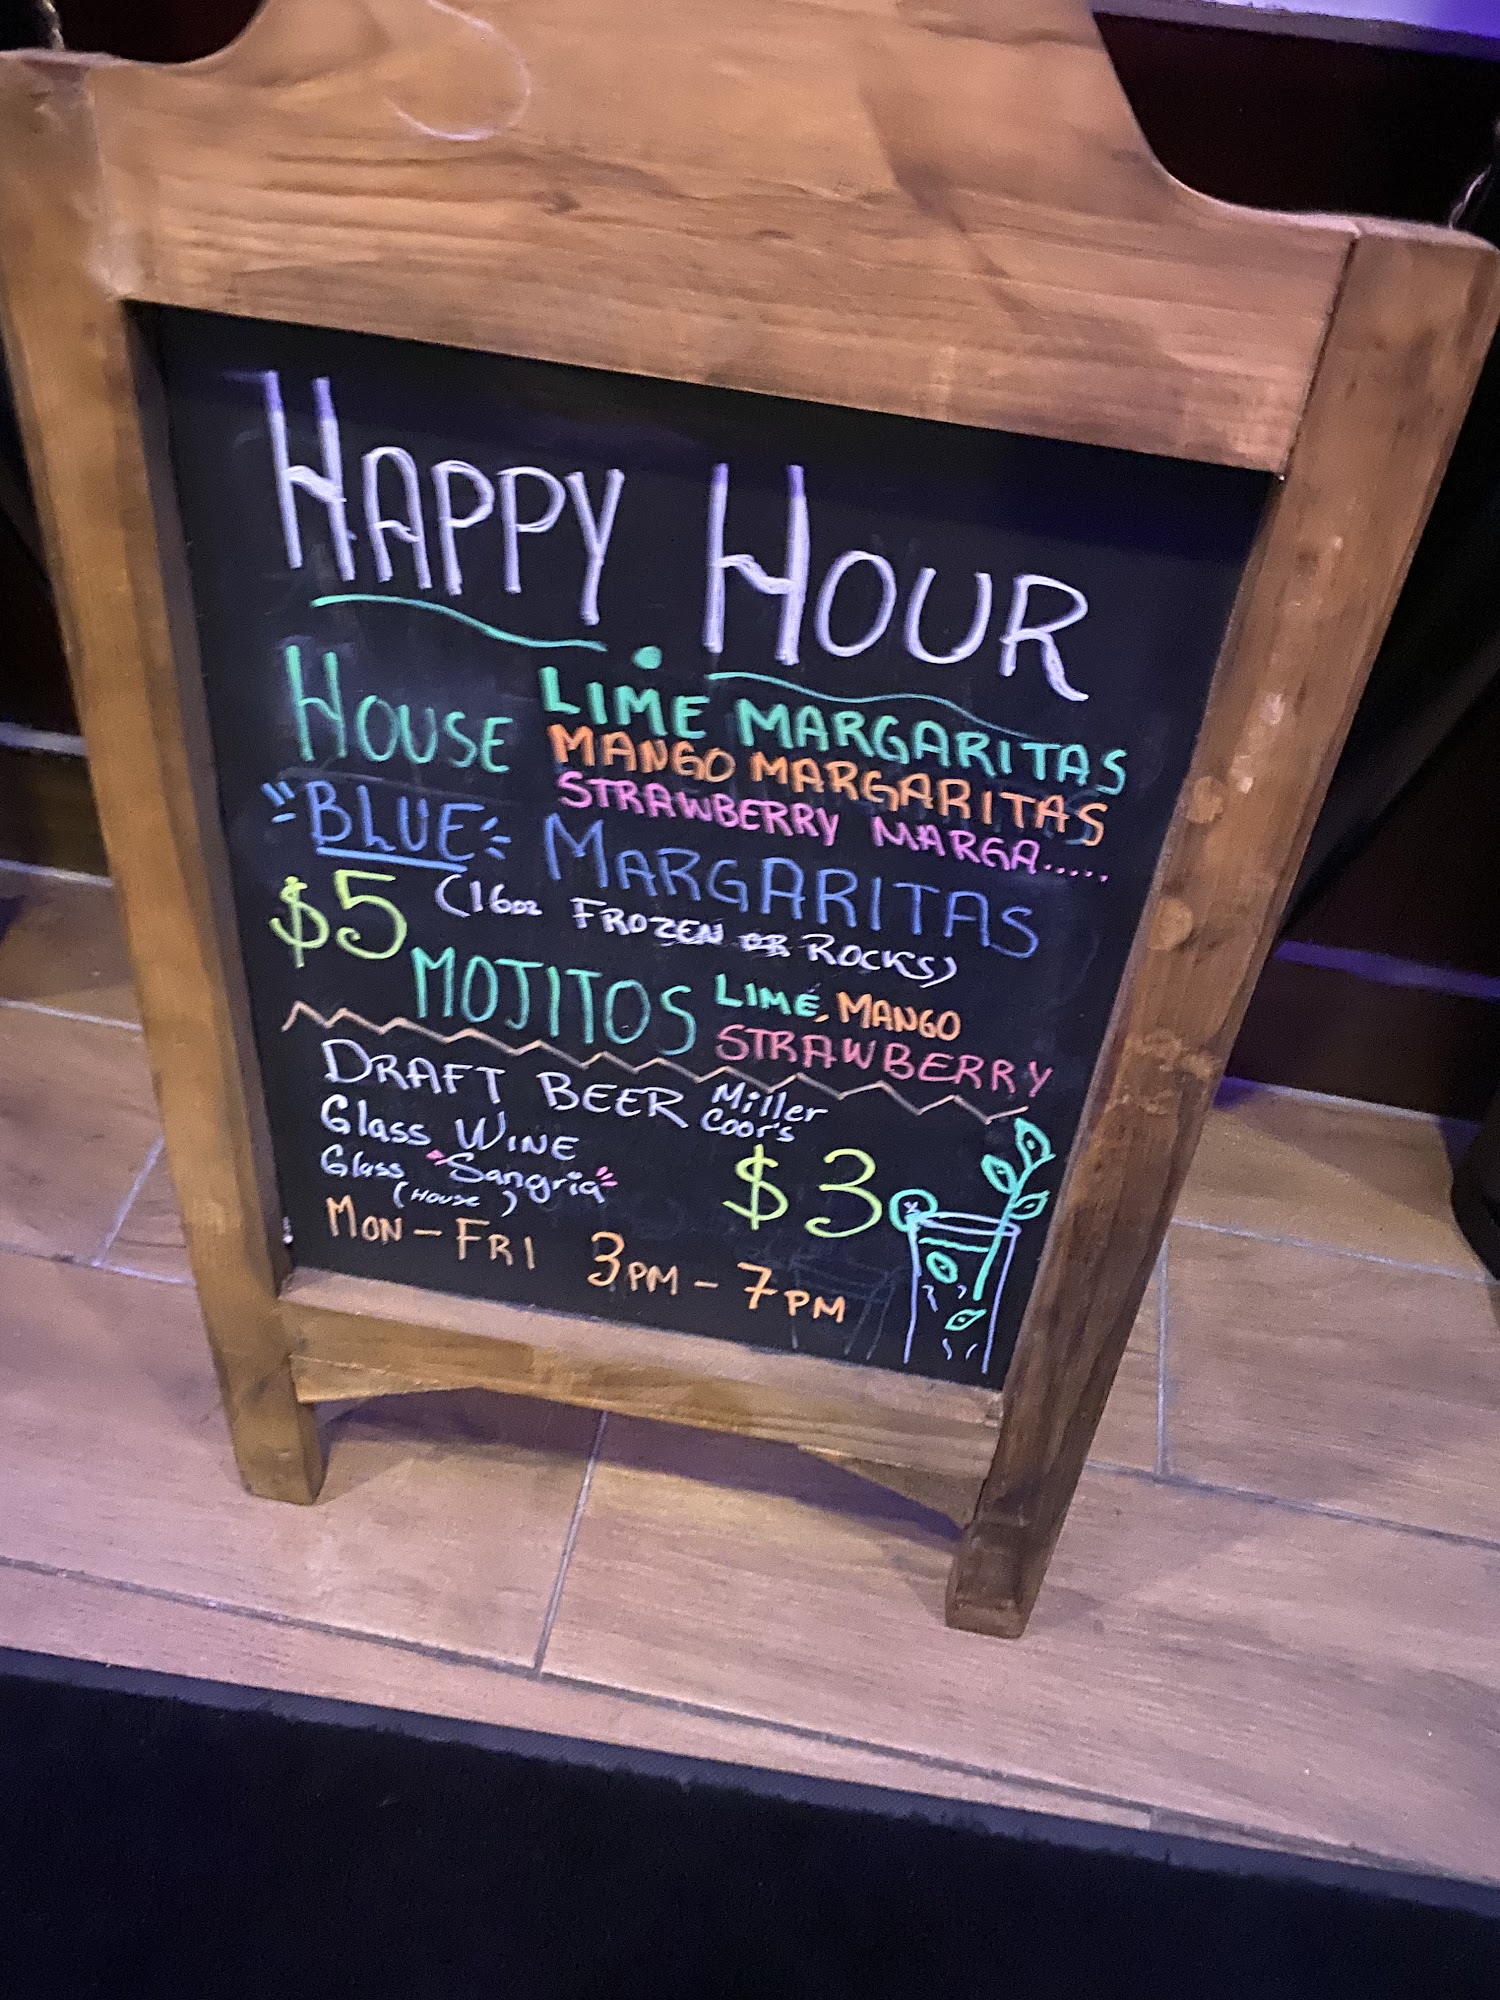 HAPPY HOUR
HOUSE LIME MARGARITAS
MANGO MARGARITAS
STRAWBERRY MARGA.....
"BLUE" MARGARITAS
$5 (16oz FROZEN OR ROCKS)
MOJITOS LIME, MANGO
STRAWBERRY
DRAFT BEER Miller
Coor's
Glass WINE
Glass "Sangria"
(HOUSE)
$3
MON - FRI 3PM - 7PM